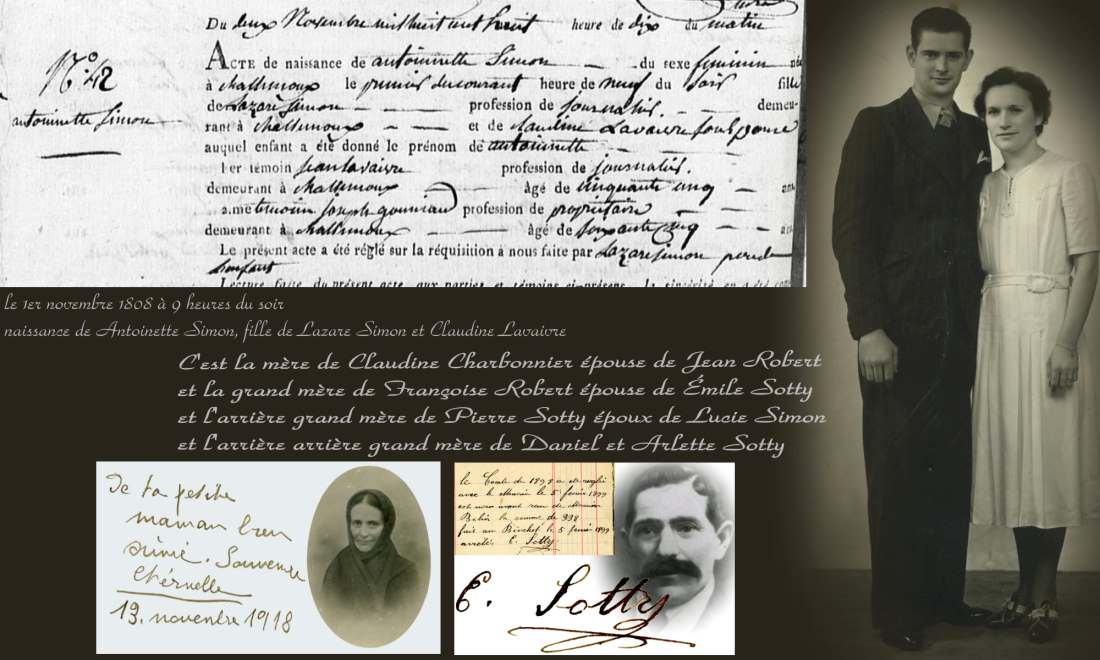 Du deux Novembre mil huit cent huit heure de dix du matin
N.º 42
antoinette Simon
ACTE de naissance de antoinette Simon du sexe feminin né
à challemoux le premier du courant heure de neuf du soir fille
de Lazare Simon profession de journalié. demeu-
rant à challemoux et de claudine Lavaivre son épouse
auquel enfant a été donné le prénom de antoinette
1er témoin jean lavaivre profession de journalié.
demeurant à challemoux âgé de cinquante cinq ans
2.me temoin joseph profession de propriétaire
demeurant à challemoux âgé de soixante cinq ans
Le présent acte a été réglé sur la réquisition à nous faite par Lazare simon pere de
lenfant
Lecture faite du présent acte aux parties et témoins
le 1er novembre 1808 à 9 heures du soir
naissance de Antoinette Simon, fille de Lazare Simon et Claudine Lavaivre
C'est la mère de Claudine Charbonnier épouse de Jean Robert
et la grand mère de Françoise Robert épouse de Émile Sotty
et l'arrière grand mère de Pierre Sotty époux de Lucie Simon
et l'arrière arrière grand mère de Daniel et Arlette Sotty
De ta petite
maman bien
aimé. Souvenir
Éternelle
13. novembre 1918
le Conte de 1898 a été réglé
avec le Mounin le 5 fevrier 1899
Bobin la somme de 338
fait au Brechet le 5 fevrier 1899
arrêté E. Sotty
E. Sotty